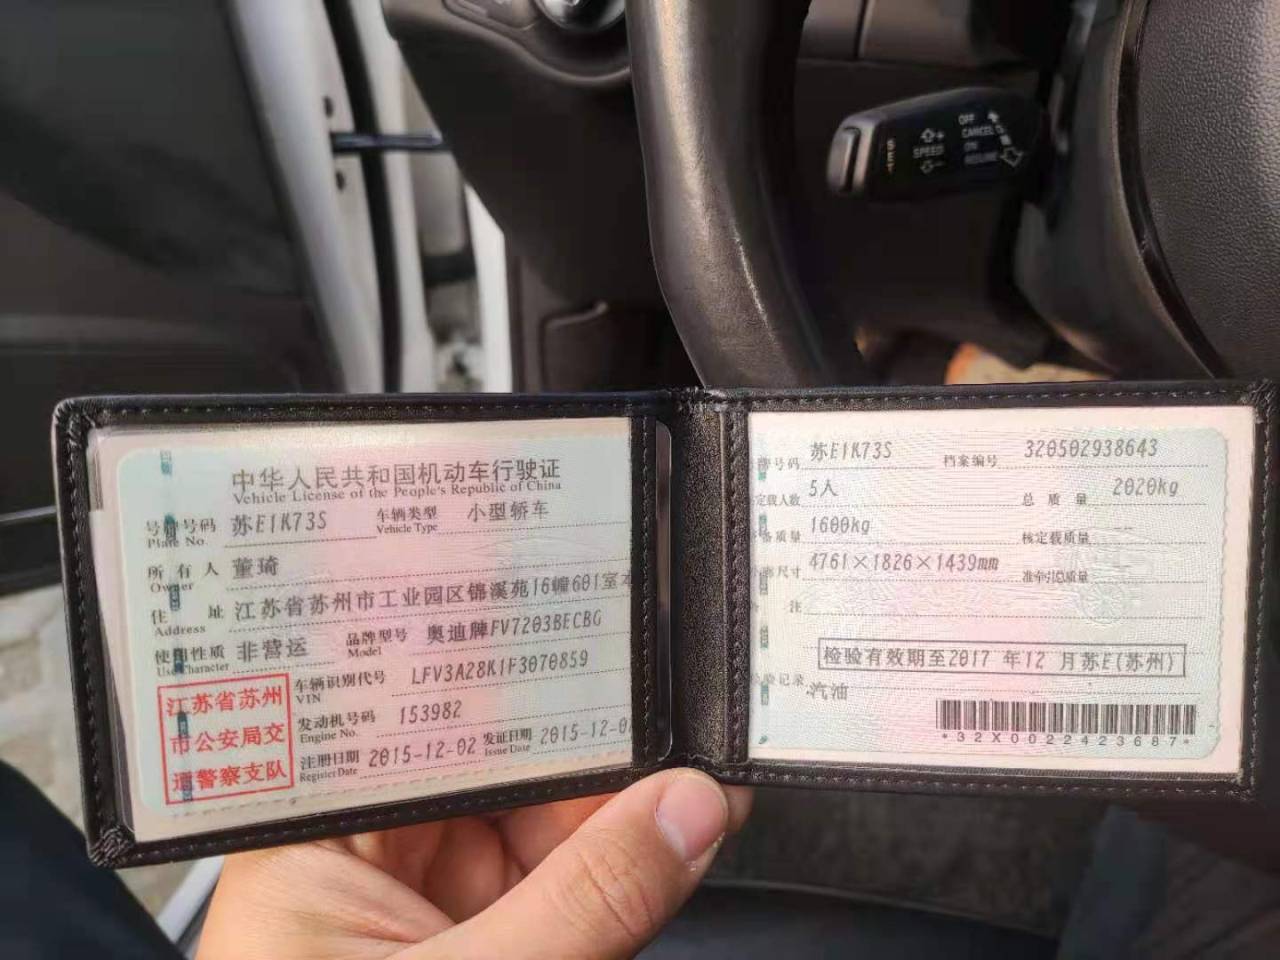 OFF
CANCEL
SPEED
ON
SET
中华人民共和国机动车行驶证
Vehicle License of the People's Republic of China
号牌号码 苏E1K73S 车辆类型 小型轿车
Plate No. Vehicle Type
所有人 董琦
Owner
住址 江苏省苏州市工业园区锦溪苑16幢601室
Address
使用性质 非营运 品牌型号 奥迪牌FV7203BECBG
Use Character Model
车辆识别代号 LFV3A28K1F3070859
VIN
发动机号码 153982
Engine No.
注册日期 2015-12-02 发证日期 2015-12-0
Register Date Issue Date
江苏省苏州
市公安局交
通警察支队
号码 苏E1K73S 档案编号 320502938643
定载人数 5人 总质量 2020kg
备质量 1600kg 核定载质量
尺寸 4761×1826×1439mm 准牵引总质量
注
检验有效期至2017年12月苏E(苏州)
验记录 汽油
*32X0022423687*